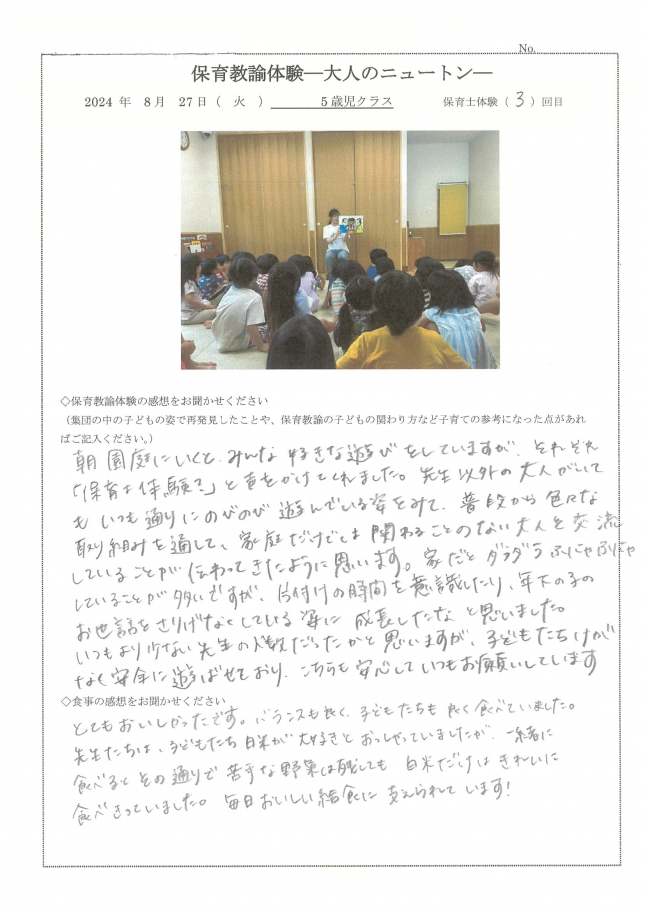 No.
保育教諭体験―大人のニュートン―
2024 年 8月 27日（ 火 ） 5歳児クラス 保育士体験（ 3 ）回目
◇保育教諭体験の感想をお聞かせください
（集団の中の子どもの姿で再発見したことや、保育教諭の子どもの関わり方など子育ての参考になった点があれ
ばご記入ください。）
朝 園庭にいくと、みんな 好きな遊びをしていますが、それぞれ
「保育士体験？」と声をかけてくれました。先生以外の大人がいて
も いつも通りにのびのび 遊んでいる姿をみて、普段から色々な
取り組みを通して、家庭だけでは 関わることのない大人と交流
していることが 伝わってきたように思います。家だと ダラダラ ふにゃふにゃ
していることが多いですが、片付けの時間を意識したり、年下の子の
お世話をさりげなくしている姿に 成長したなと思いました。
いつもより少ない先生の人数だったかと思いますが、子どもたちけが
なく安全に遊ばせており、こちらも安心していつもお願いしています
◇食事の感想をお聞かせください
とてもおいしかったです。バランスも良く、子どもたちも良く食べていました。
先生たちは、子どもたち白米が大好きとおっしゃっていましたが、一緒に
食べると その通りで 苦手な野菜は残しても 白米だけは きれいに
食べきっていました。毎日おいしい給食に 支えられています！